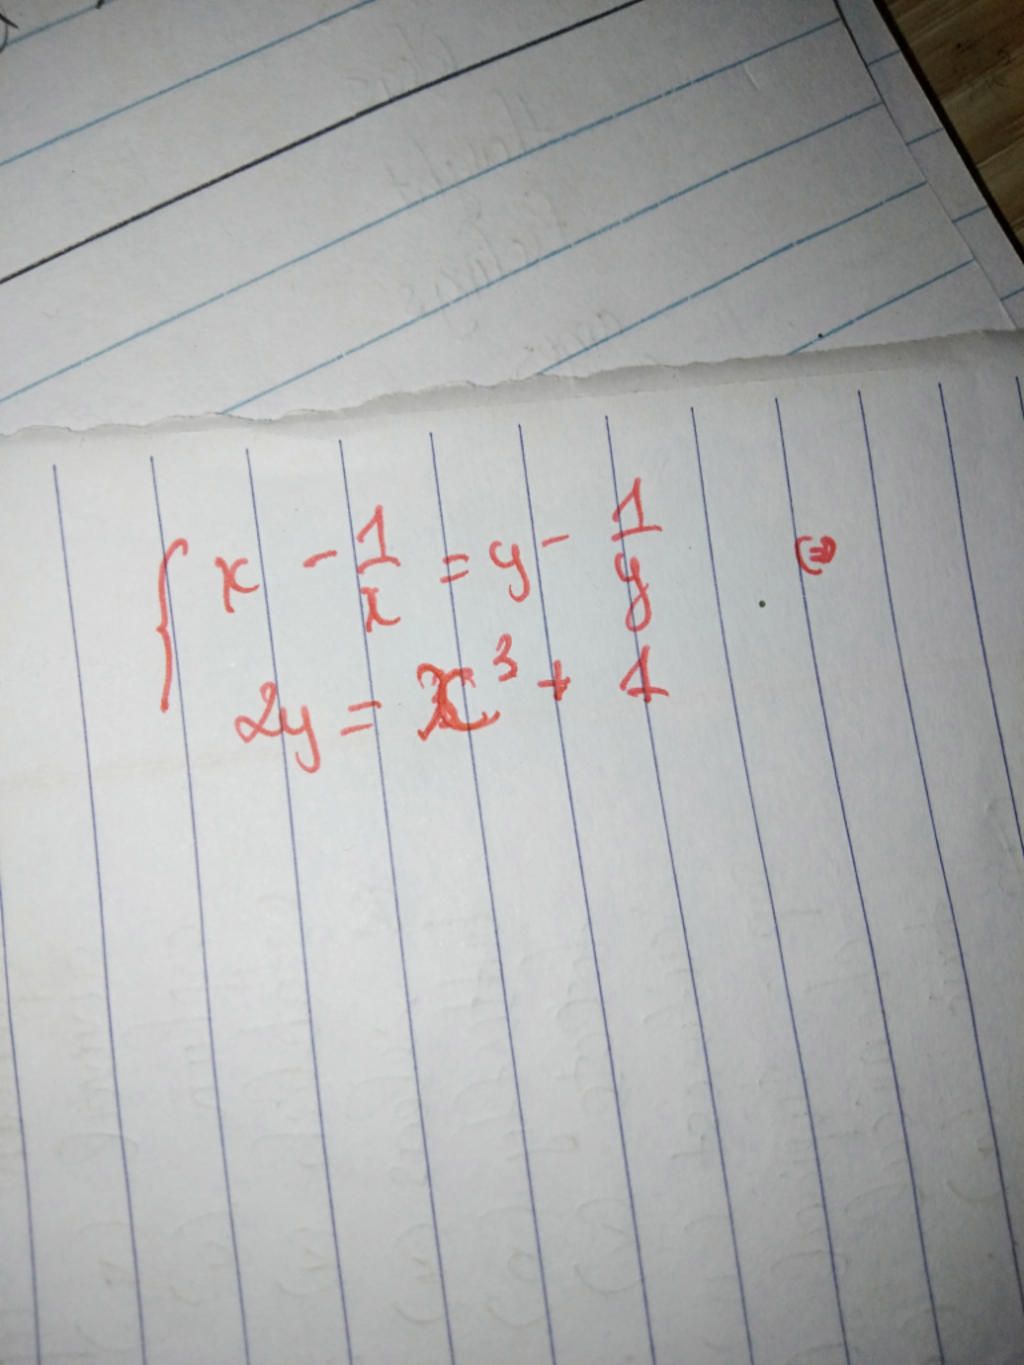 { x - 1/x = y - 1/y ⇔
2y = x³ + 1